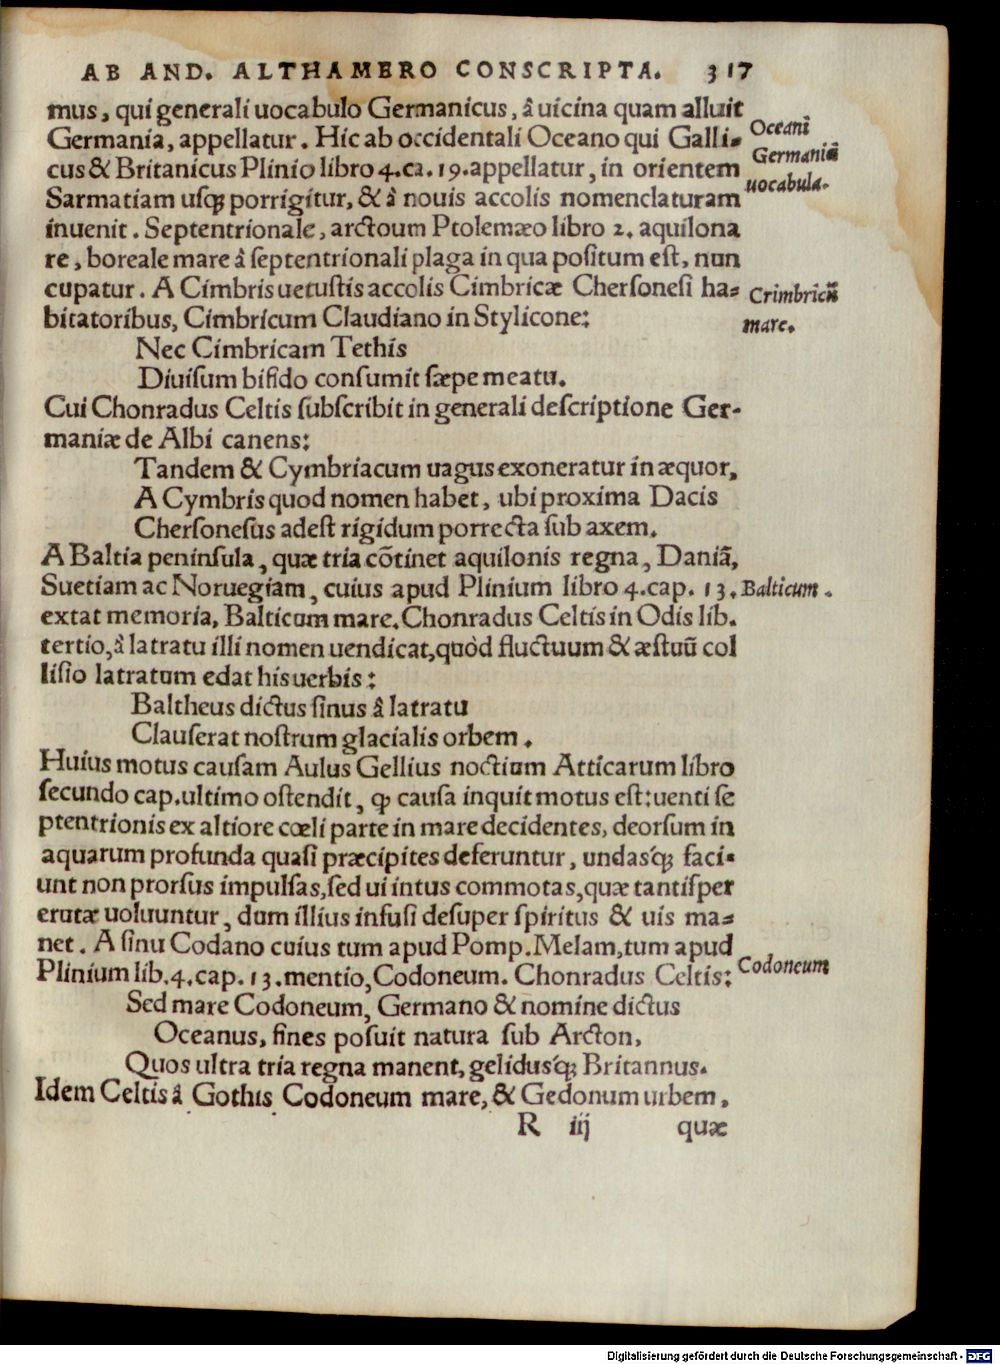 AB AND. ALTHAMERO CONSCRIPTA. 317
mus, qui generali uocabulo Germanicus, â uicina quam alluit
Germania, appellatur. Hic ab occidentali Oceano qui Galli-
cus & Britanicus Plinio libro 4.ca.19.appellatur, in orientem
Sarmatiam usqꝫ porrigitur, & â nouis accolis nomenclaturam
inuenit. Septentrionale, arctoum Ptolemæo libro 2. aquilona
re, boreale mare â septentrionali plaga in qua positum est, nun
cupatur. A Cimbris uetustis accolis Cimbricæ Chersonesi ha-
bitatoribus, Cimbricum Claudiano in Stylicone:
Nec Cimbricam Tethis
Diuisum bifido consumit sæpe meatu.
Cui Chonradus Celtis subscribit in generali descriptione Ger-
maniæ de Albi canens:
Tandem & Cymbriacum uagus exoneratur in æquor,
A Cymbris quod nomen habet, ubi proxima Dacis
Chersonesus adest rigidum porrecta sub axem.
A Baltia peninsula, quæ tria cõtinet aquilonis regna, Daniã,
Suetiam ac Noruegiam, cuius apud Plinium libro 4.cap. 13.
extat memoria, Balticum mare. Chonradus Celtis in Odis lib.
tertio, â latratu illi nomen uendicat, quòd fluctuum & æstuũ col
lisio latratum edat his uerbis:
Baltheus dictus sinus â latratu
Clauserat nostrum glacialis orbem.
Huius motus causam Aulus Gellius noctium Atticarum libro
secundo cap.ultimo ostendit, ꝙ causa inquit motus est: uenti se
ptentrionis ex altiore cœli parte in mare decidentes, deorsum in
aquarum profunda quasi præcipites deferuntur, undasq́ꝫ faci-
unt non prorsus impulsas, sed ui intus commotas, quæ tantisper
erutæ uoluuntur, dum illius infusi desuper spiritus & uis ma-
net. A sinu Codano cuius tum apud Pomp. Melam, tum apud
Plinium lib.4.cap.13.mentio, Codoneum. Chonradus Celtis:
Sed mare Codoneum, Germano & nomine dictus
Oceanus, fines posuit natura sub Arcton,
Quos ultra tria regna manent, gelidusq́ꝫ Britannus.
Idem Celtis â Gothis Codoneum mare, & Gedonum urbem,
R iij quæ
Oceani
Germaniã
uocabula.
Crimbricũ
mare.
Balticum.
Codoneum
Digitalisierung gefördert durch die Deutsche Forschungsgemeinschaft - DFG